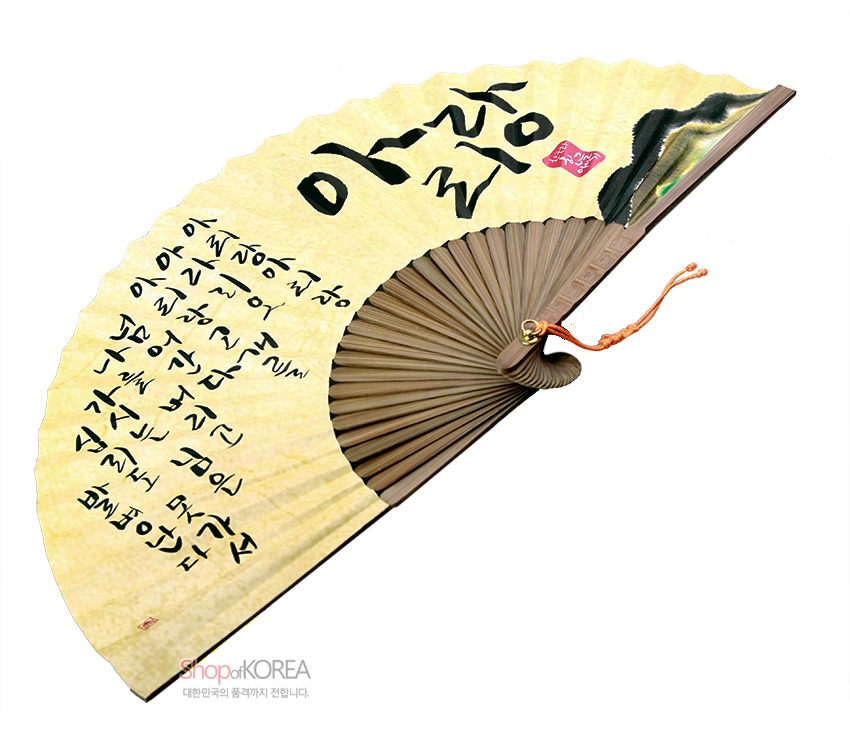 아리랑
아리랑아리랑
아라리요
아리랑 고개를
넘어간다
나를 버리고
가시는 님은
십리도 못가서
발병난다
ShopofKOREA
대한민국의 품격까지 전합니다.